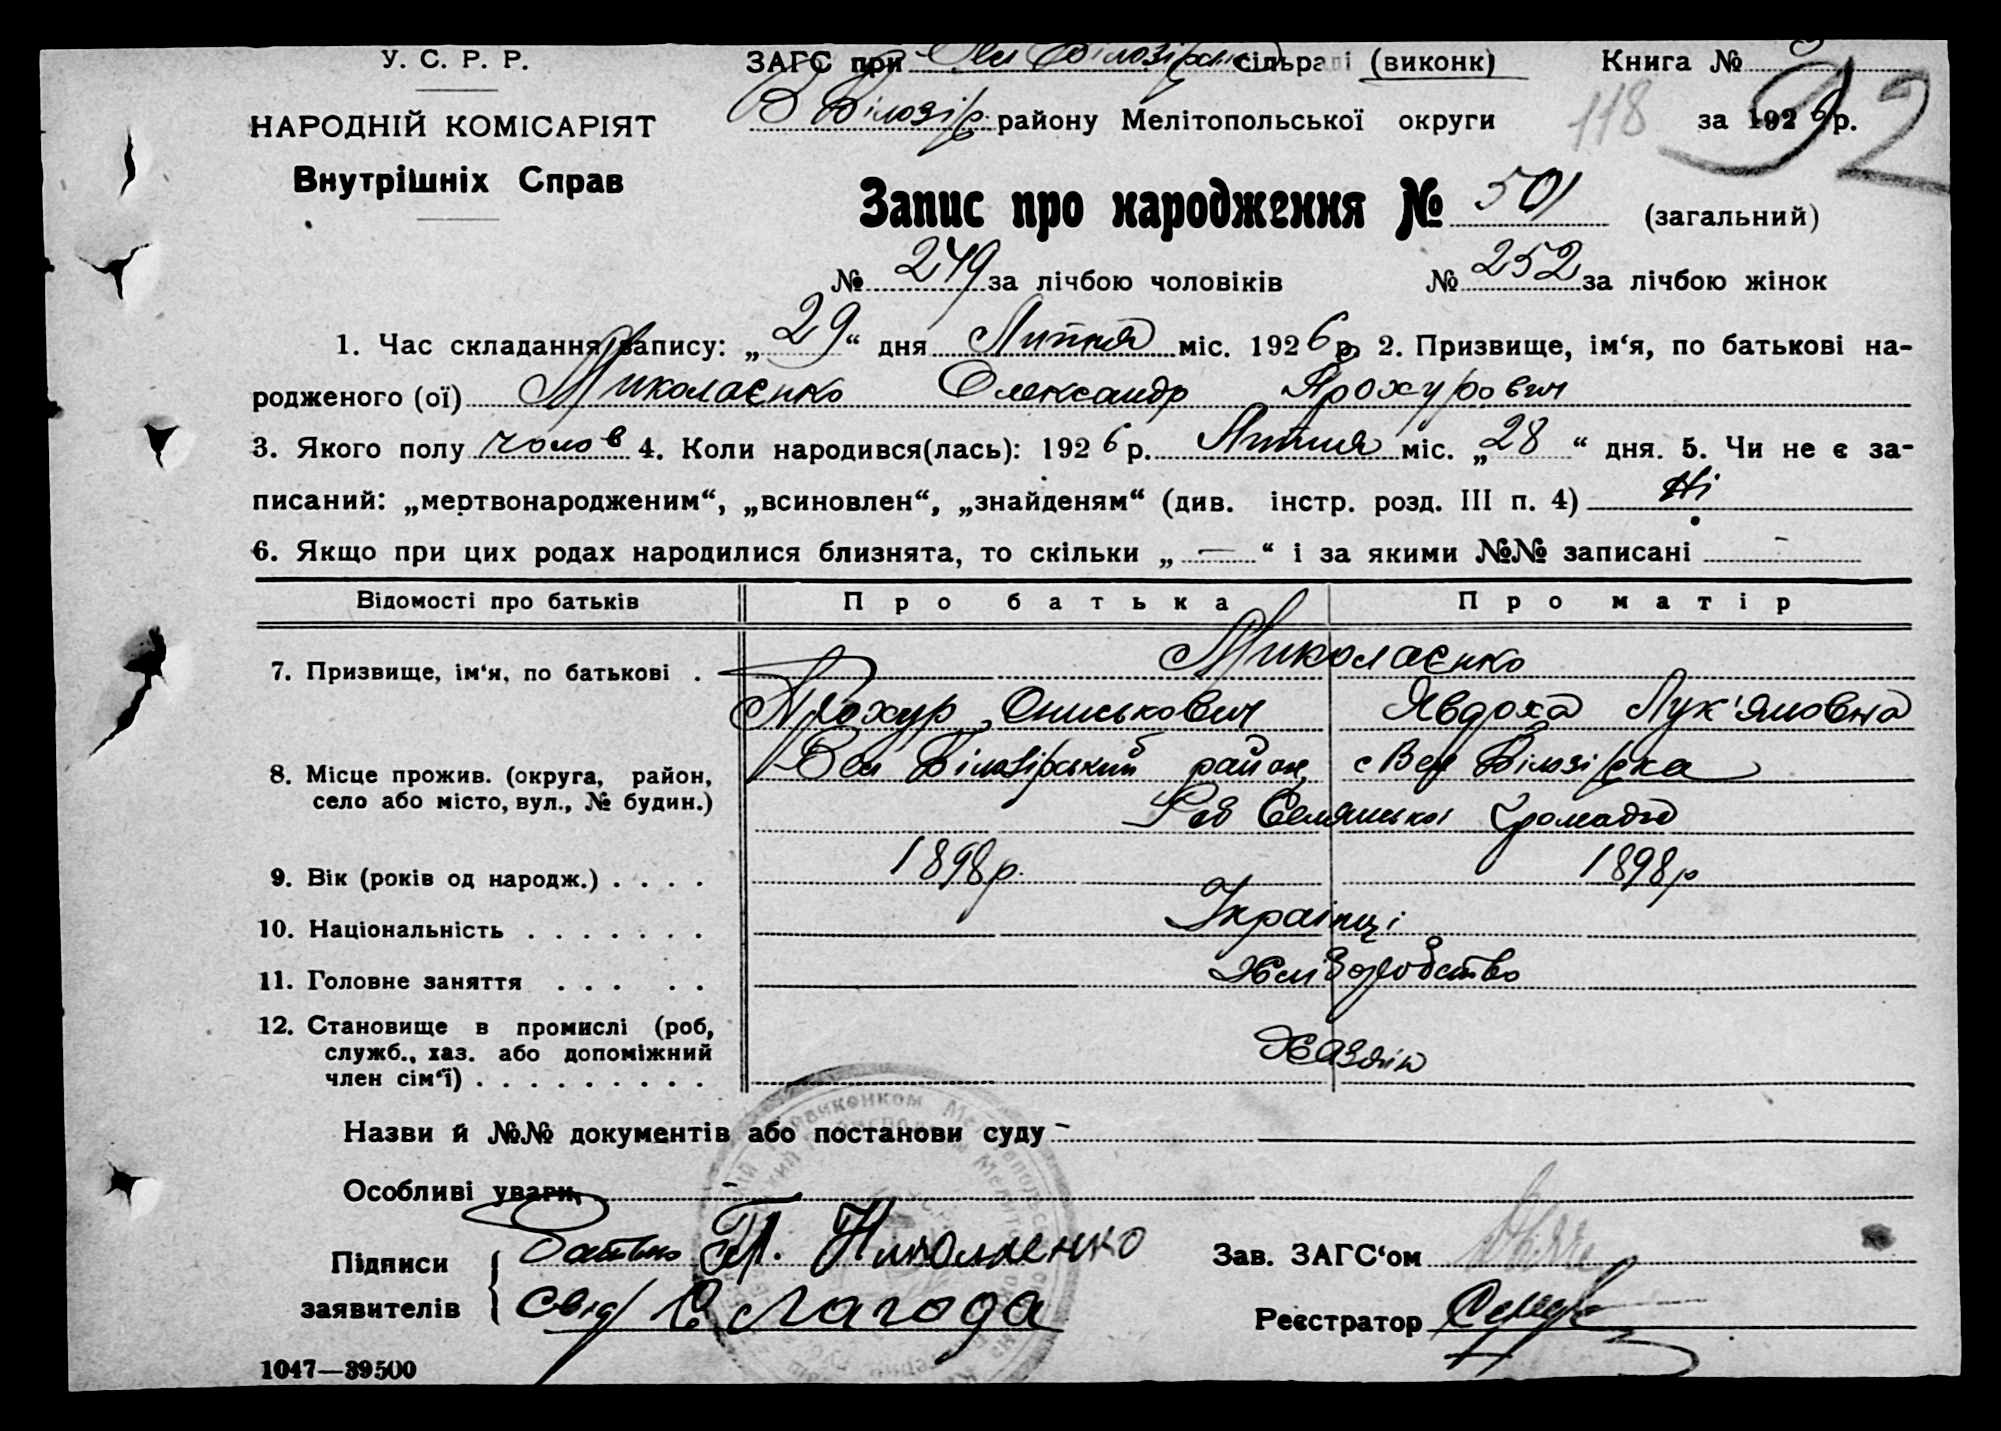 У. С. Р. Р.
НАРОДНІЙ КОМІСАРІЯТ
Внутрішніх Справ
ЗАГС при Вел Білозірській сільраді (виконк)
В Білозір. району Мелітопольської округи
Книга №
118
за 1926 р.
92
Запис про народження № 501 (загальний)
№ 249 за лічбою чоловіків № 252 за лічбою жінок
1. Час складання запису: „29“ дня Липня міс. 1926 р. 2. Призвище, ім‘я, по батькові на-
родженого (ої) Миколаєнко Олександр Прохурович
3. Якого полу чолов 4. Коли народився(лась): 1926 р. Липня міс. „28“ дня. 5. Чи не є за-
писаний: „мертвонародженим“, „всиновлен“, „знайденям“ (див. інстр. розд. III п. 4) Ні
6. Якщо при цих родах народилися близнята, то скільки „—“ і за якими №№ записані -
Відомості про батьків Про батька Про матір
7. Призвище, ім‘я, по батькові . Миколаєнко
Прохур Ониськович Явдоха Лук'яновна
8. Місце прожив. (округа, район, село або місто, вул., № будин.) Вел Білозірський район, с Вел Білозірка
Селянської Громади
9. Вік (років од народж.) . . . . 1898р. 1898р
10. Національність . . . . . . . Українці
11. Головне заняття . . . . . Хліборобство
12. Становище в промислі (роб,
служб., хаз. або допоміжний
член сім‘ї) . . . . . . . . . Хазяїн
Назви й №№ документів або постанови суду -
Особливі уваги -
Підписи заявителів
Батько П. Николаенко
Свід Лагода
Зав. ЗАГС‘ом
Реєстратор
1047—39500